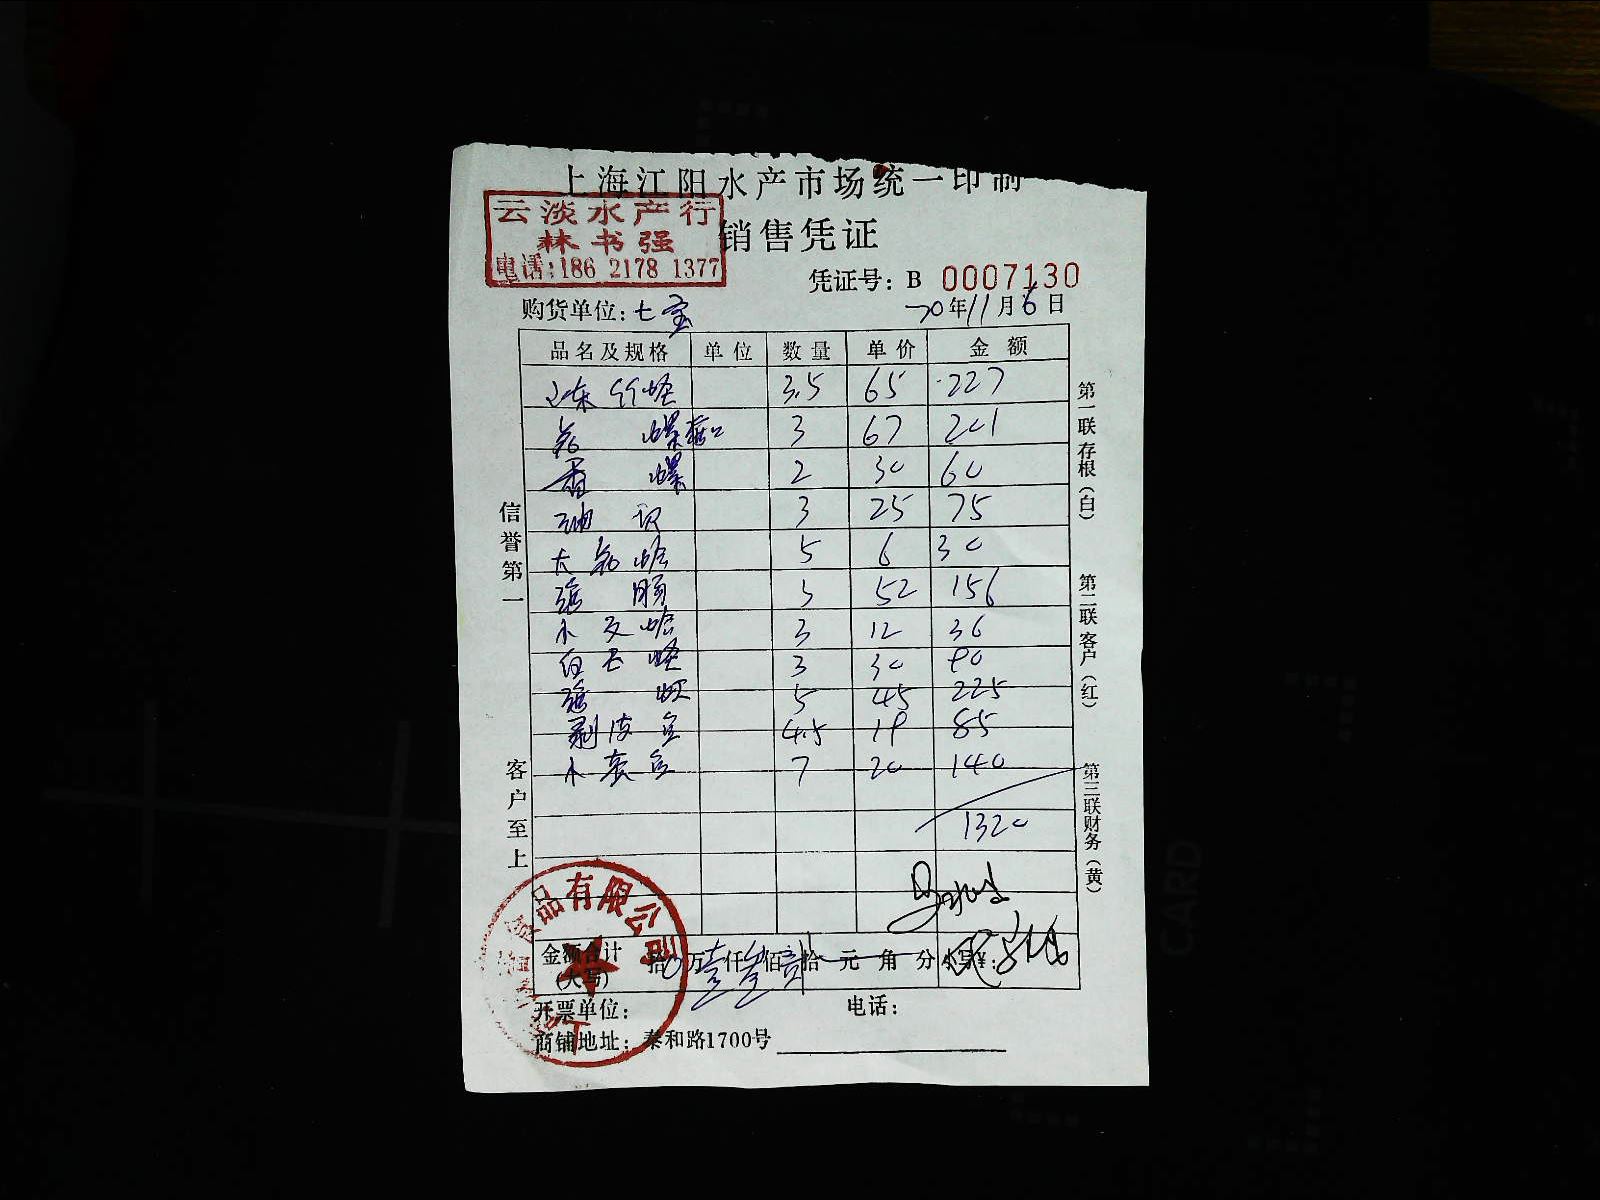 上海江阳水产市场统一印制
云淡水产行
林书强
电话:186 2178 1377
销售凭证
凭证号: B 0007130
购货单位: 七宝
20年11月6日
品名及规格 单位 数量 单价 金额
3.5 65 227
螺 3 67 201
香螺 2 30 60
3 25 75
大 蛤 5 6 30
3 52 156
小文蛤 3 12 36
白玉蛏 3 30 90
5 45 225
剥皮鱼 4.5 19 85
小 鱼 7 20 140
1320
金额合计(大写) 拾 万壹仟叁佰贰拾 元 角 分 小写¥:
开票单位: 电话:
商铺地址: 泰和路1700号
信誉第一
客户至上
第一联存根(白)
第二联客户(红)
第三联财务(黄)
食品有限公司